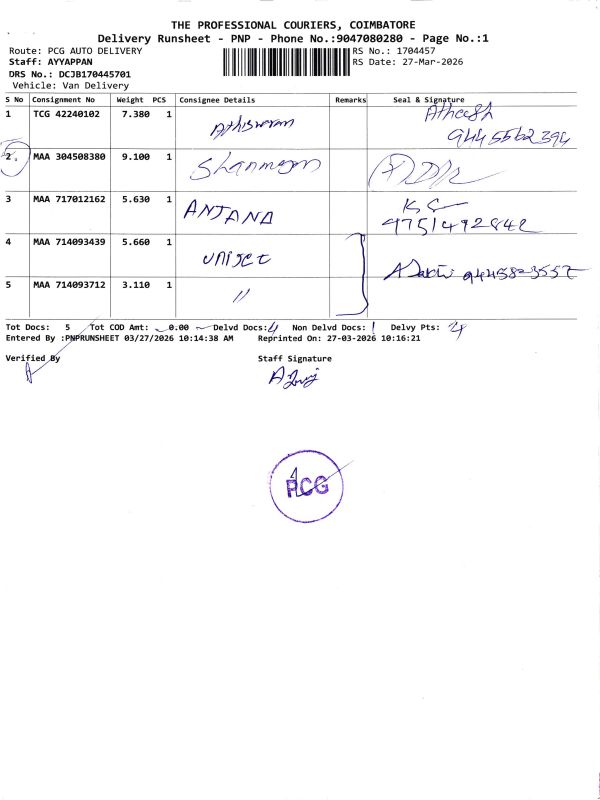 THE PROFESSIONAL COURIERS, COIMBATORE
Delivery Runsheet - PNP - Phone No.:9047080280 - Page No.:1
Route: PCG AUTO DELIVERY RS No.: 1704457
Staff: AYYAPPAN RS Date: 27-Mar-2026
DRS No.: DCJB170445701
Vehicle: Van Delivery
S No Consignment No Weight PCS Consignee Details Remarks Seal & Signature
1 TCG 42240102 7.380 1 Athiswaram Atheesh
9445562394
2 MAA 304508380 9.100 1 Shanmugam
3 MAA 717012162 5.630 1 ANJANA
9751492842
4 MAA 714093439 5.660 1 UNIJET
5 MAA 714093712 3.110 1 "
Tot Docs: 5 Tot COD Amt: 0.00 Delvd Docs: 4 Non Delvd Docs: 1 Delvy Pts: 4
Entered By :PNPRUNSHEET 03/27/2026 10:14:38 AM Reprinted On: 27-03-2026 10:16:21
Verified By Staff Signature
PCG